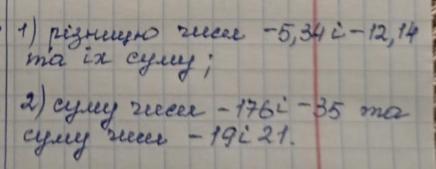 1) різницю чисел -5,34 і -12,14
та їх суму;
2) суму чисел -176 і -35 та
суму чисел -19 і 21.